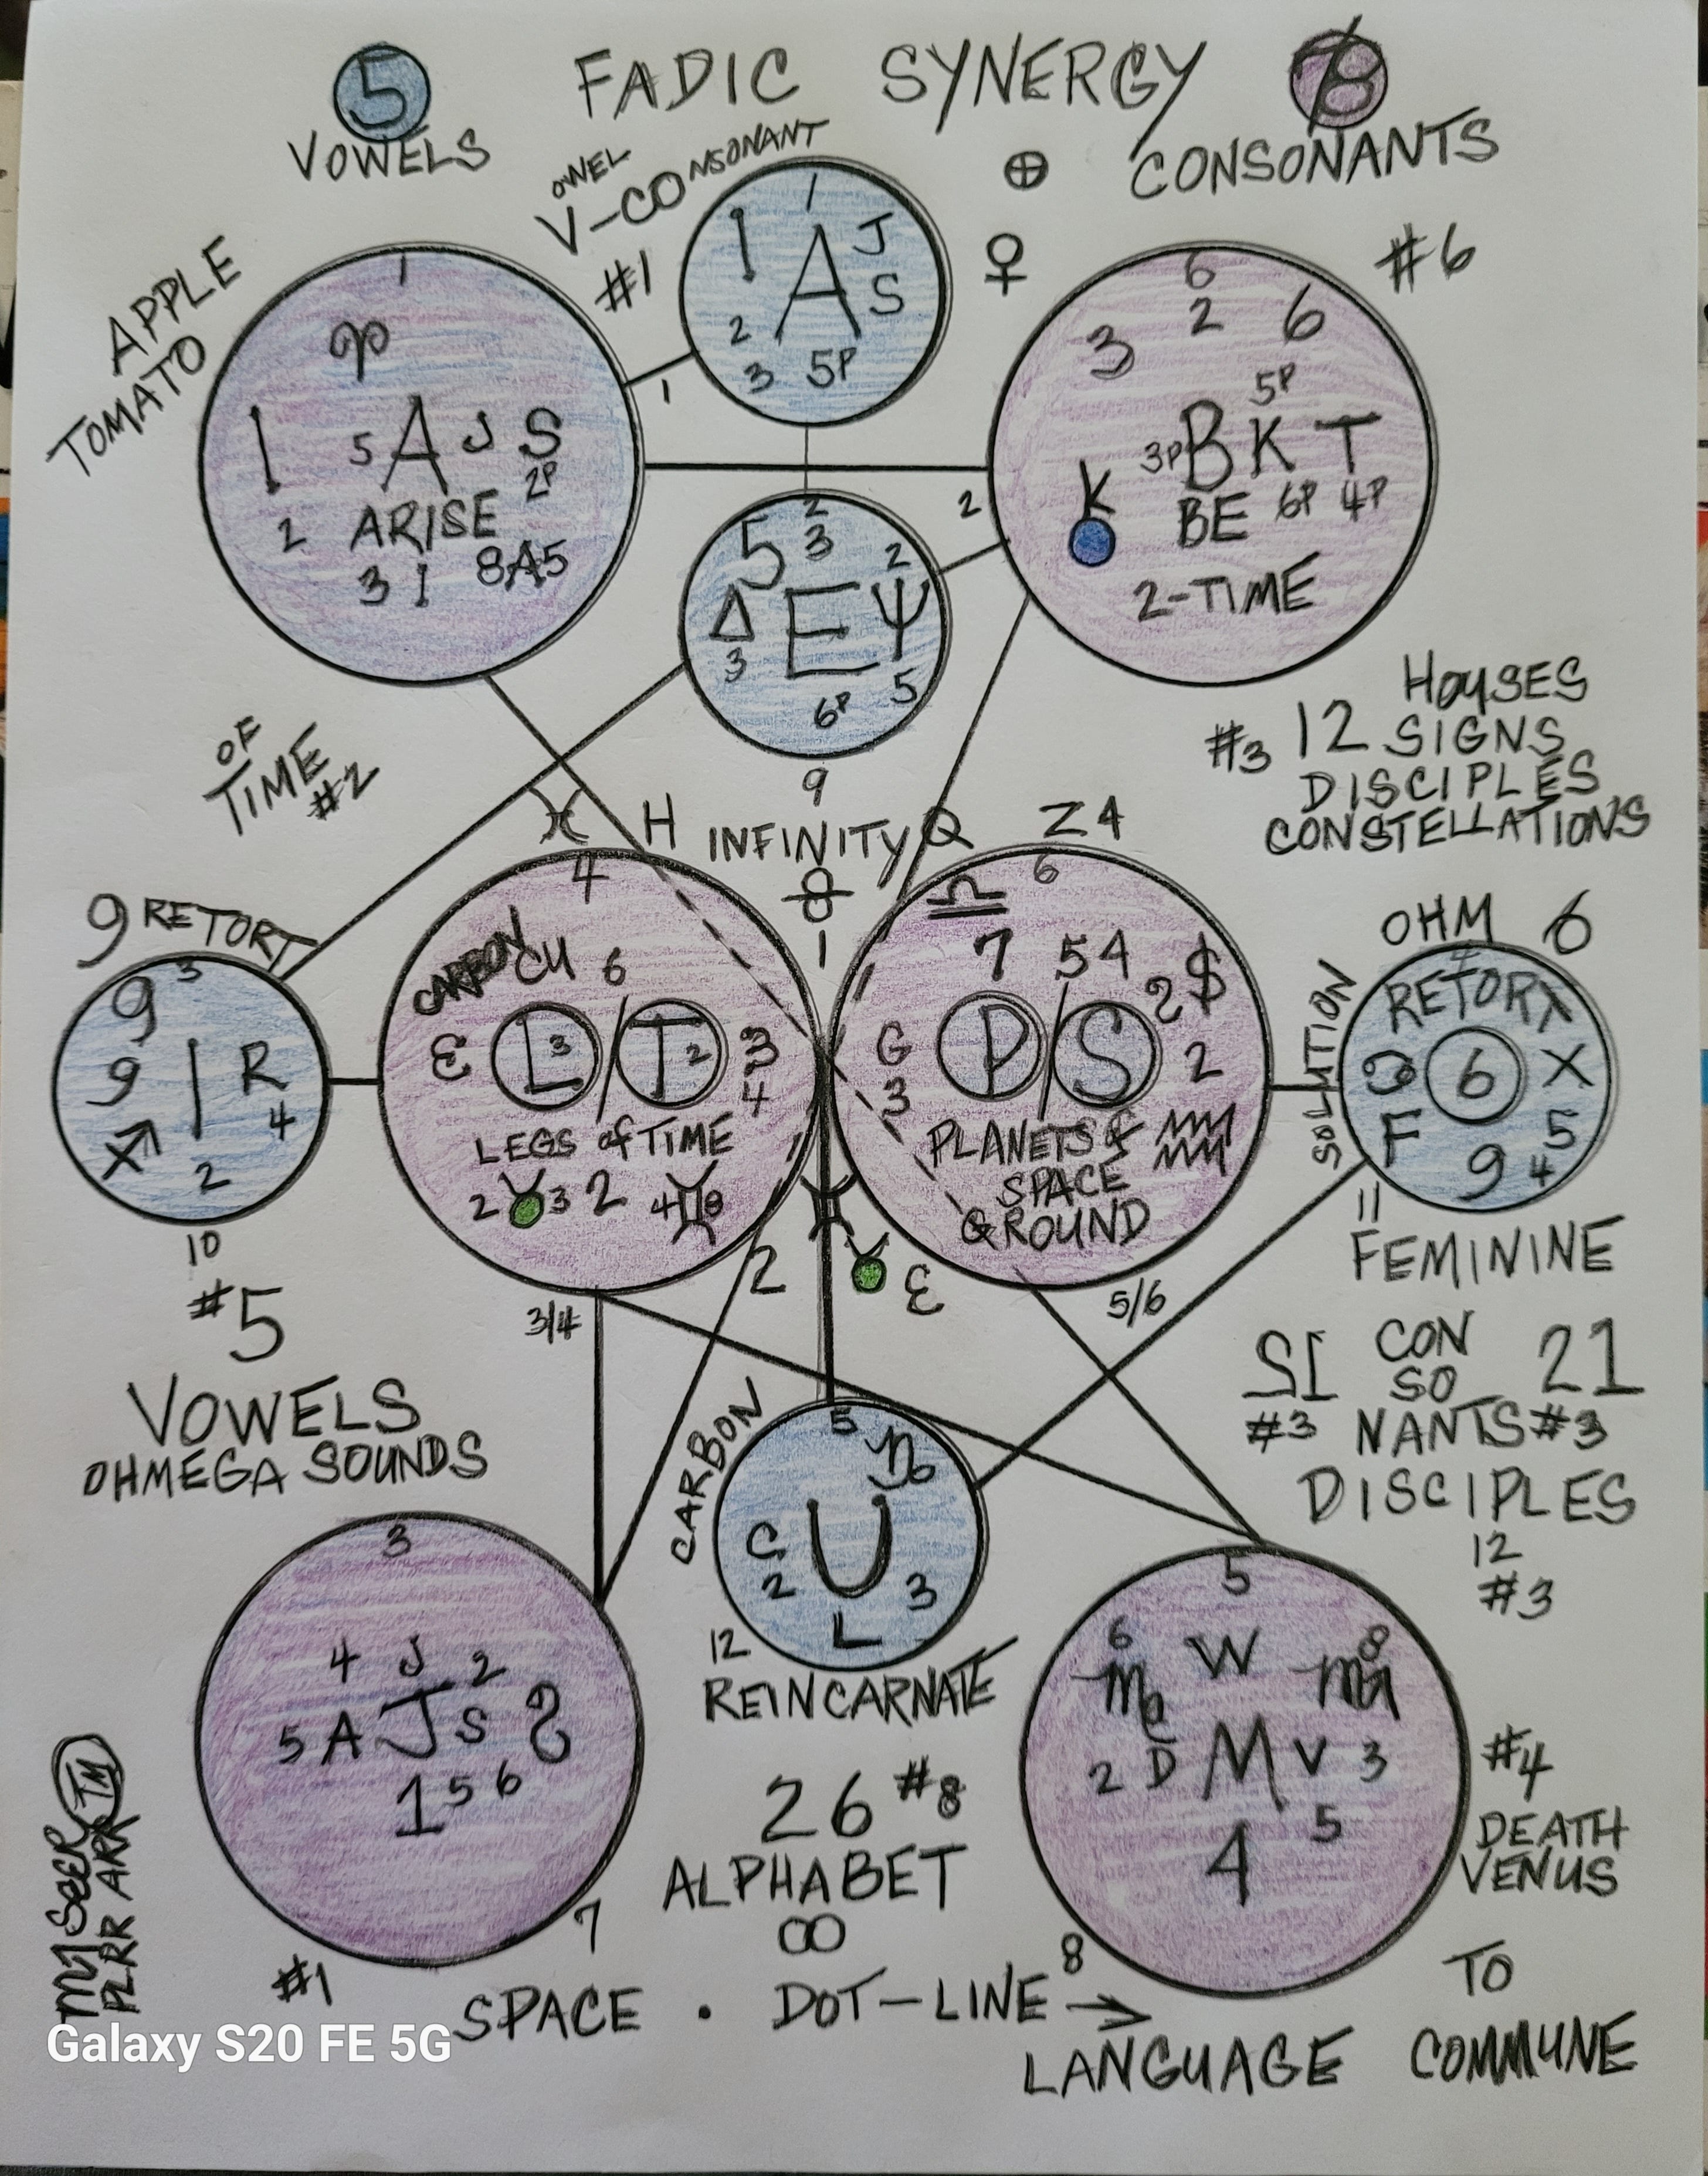 5 FADIC SYNERGY 78
VOWELS
⊕ CONSONANTS
OWEL NSONANT
V-CO
#1
APPLE
TOMATO
1
1 A J
S
2
3 5P
♀
#6
1
♈
1 5 A J S
2P
2 ARISE
3 I 8A5
1
6
3 2 6
5P
3P B K T
K BE 6P 4P
2-TIME
2
2
5 3 2
Δ E Ψ
3 6P 5
9
OF
TIME
#2
HOUSES
#3 12 SIGNS
DISCIPLES
CONSTELLATIONS
♓ H INFINITY Q Z4
8
1
9 RETORT
9 3
9 1 R
♐ 4
2
10
4
CARBON CU 6
Ɛ L 3 / T 2 3
4
LEGS of TIME
2 ♉ 3 2 4 ♊ 8
2
3/4
6
♎
7 54 $
2
G P / S 2
3
PLANETS of
SPACE
GROUND
5/6
♓
♉ Ɛ
OHM 6
SOLUTION
RETORX
6 X
F 9 5
4
11
FEMININE
#5
VOWELS
OHMEGA SOUNDS
12 CON 21
SO
#3 NANTS #3
DISCIPLES
12
#3
CARBON
5
♑
C U
2 3
L
12
REINCARNATE
3
4 J 2
5 A J S 2
1 5 6
7
#1
5
6 W 8
2 D M V 3
4 5
8
#4
DEATH
VENUS
26 #8
ALPHABET
∞
SPACE . DOT-LINE →
TO
LANGUAGE COMMUNE
SEER TM
PLRR ARR
Galaxy S20 FE 5G